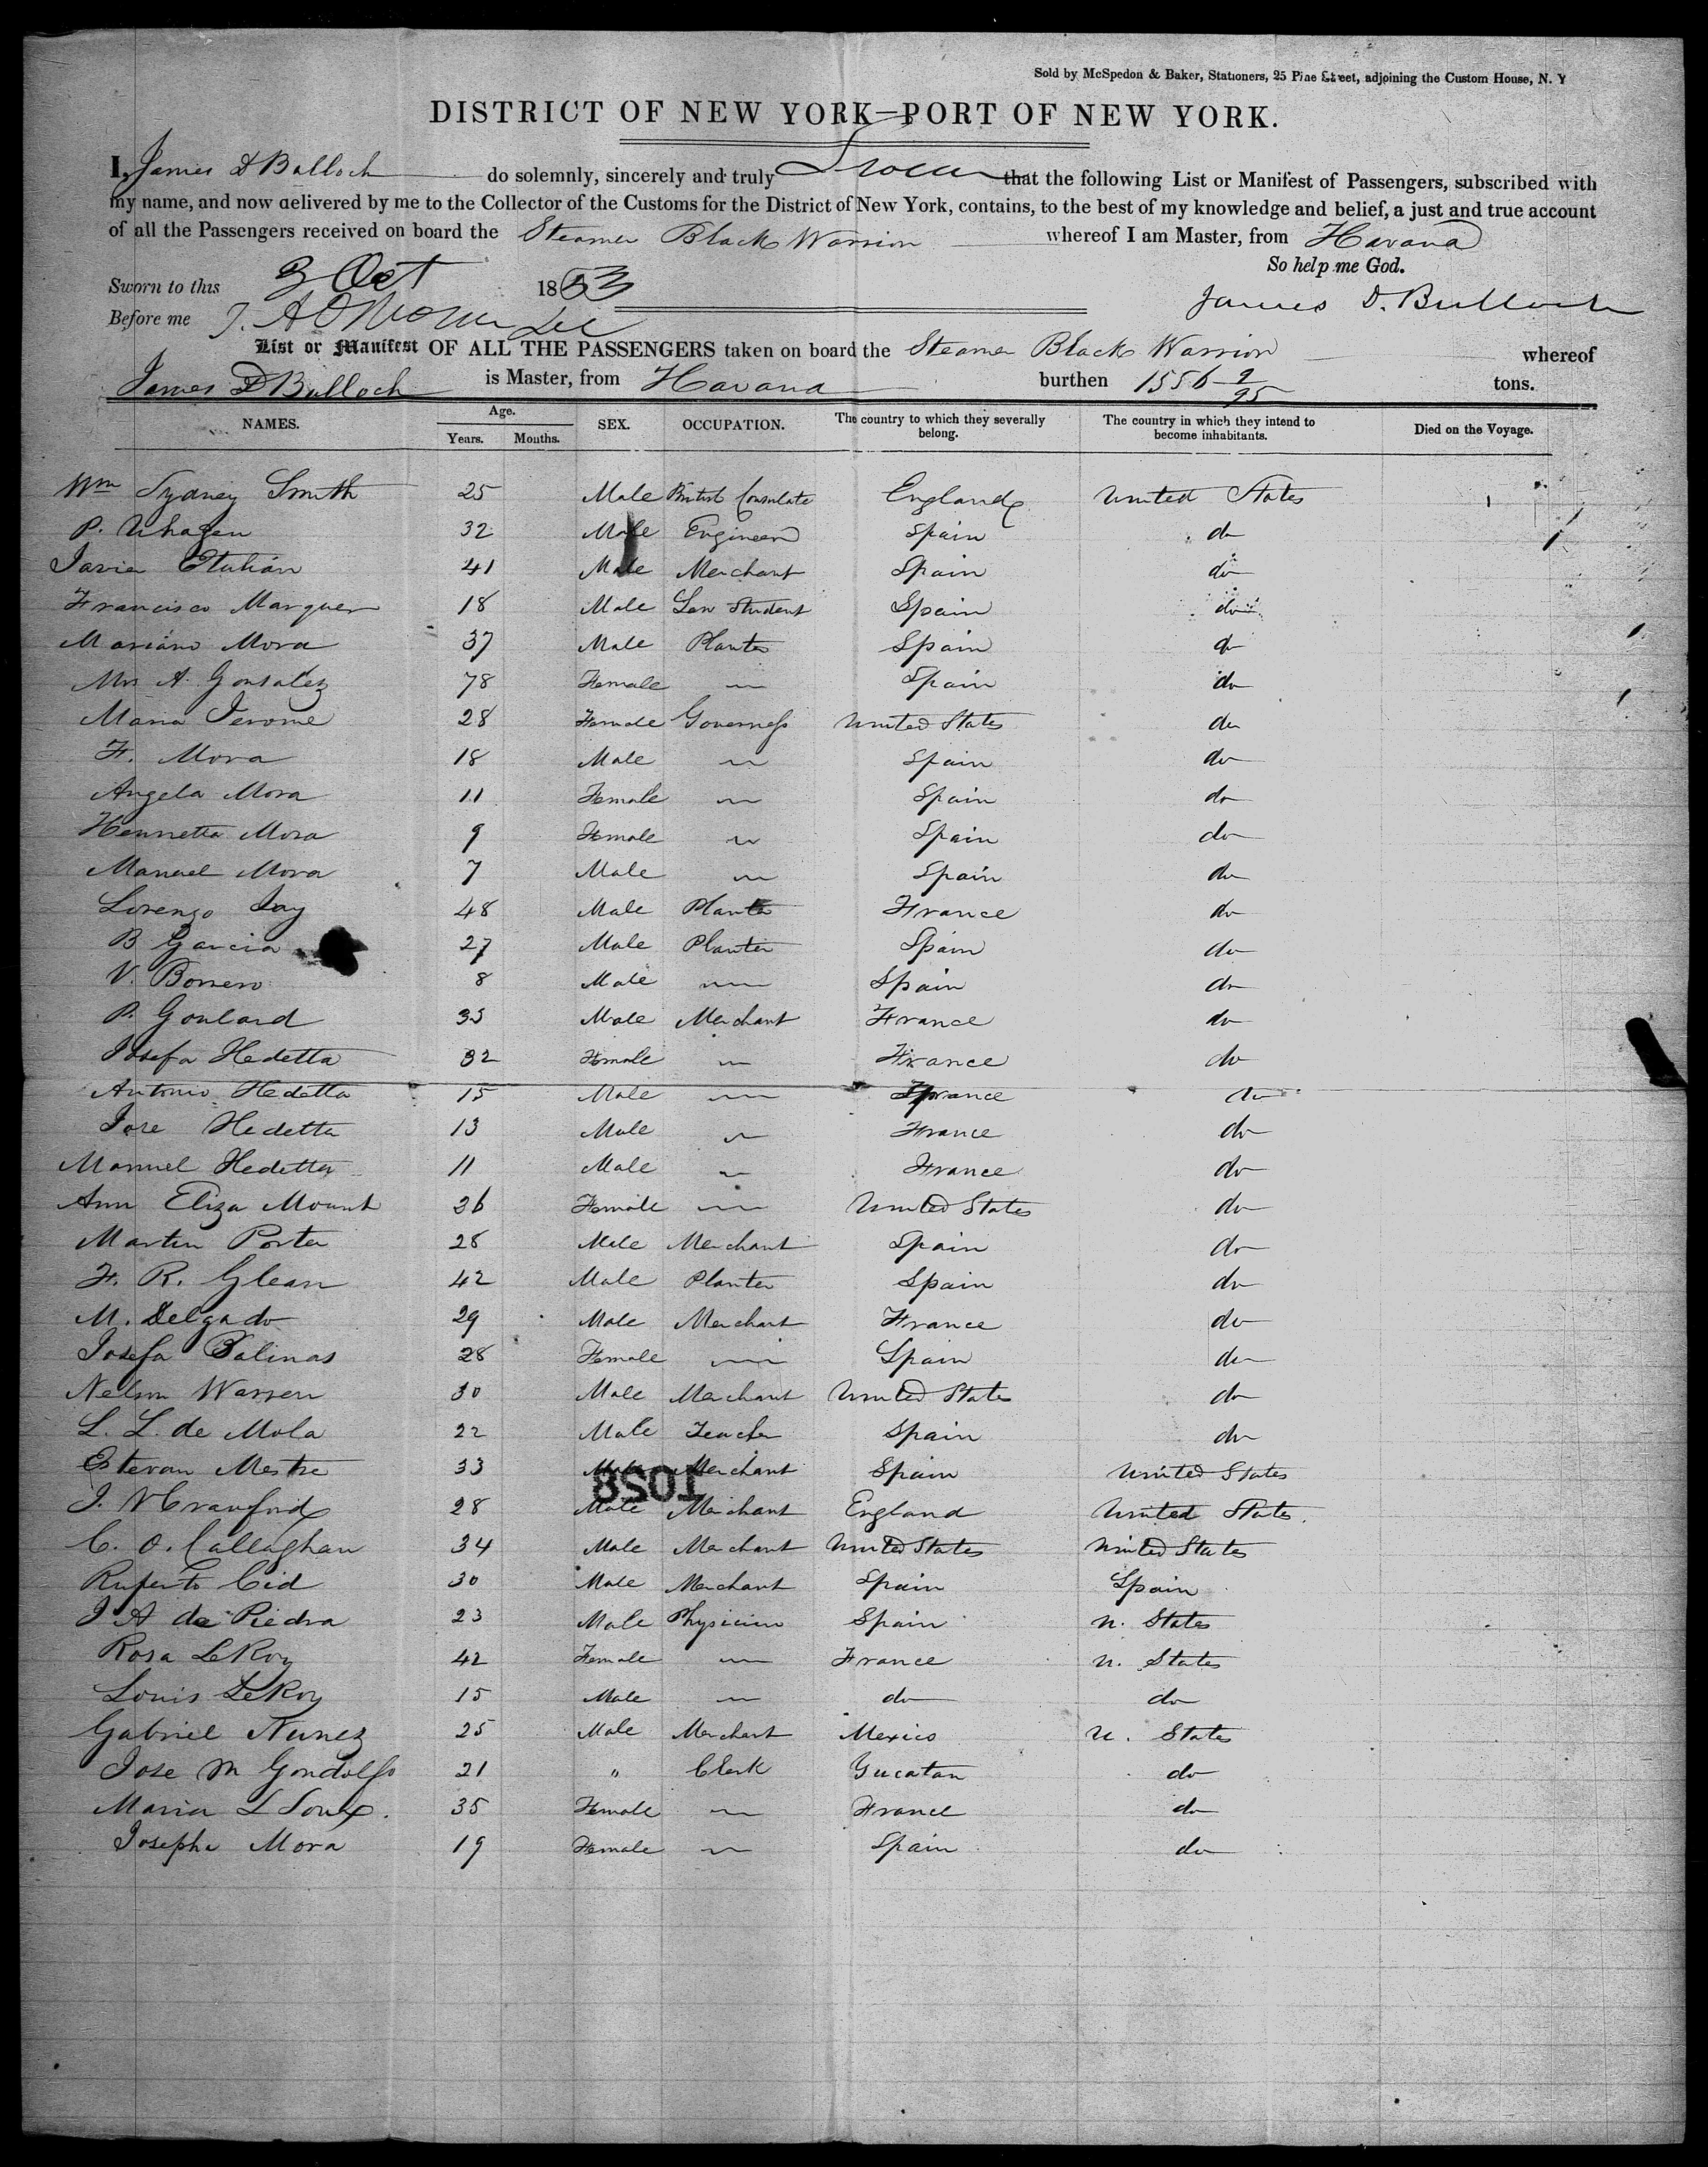 Sold by McSpedon & Baker, Stationers, 25 Pine Street, adjoining the Custom House, N. Y
DISTRICT OF NEW YORK—PORT OF NEW YORK.
I, James D Bulloch do solemnly, sincerely and truly Swear that the following List or Manifest of Passengers, subscribed with
my name, and now delivered by me to the Collector of the Customs for the District of New York, contains, to the best of my knowledge and belief, a just and true account
of all the Passengers received on board the Steamer Black Warrior whereof I am Master, from Havana
So help me God.
Sworn to this 3 Oct 1853
James D. Bulloch
Before me
List or Manifest OF ALL THE PASSENGERS taken on board the Steamer Black Warrior whereof
James D Bulloch is Master, from Havana burthen 1556 9/95 tons.
NAMES. Age. Years. Months. SEX. OCCUPATION. The country to which they severally belong. The country in which they intend to become inhabitants. Died on the Voyage.
Wm Sydney Smith 25 Male British Consulate England United States
P. Uhagen 32 Male Engineer Spain do
Javier 41 Male Merchant Spain do
Francisco Marquer 18 Male Law Student Spain do
Mariano Mora 37 Male Planter Spain do
Mrs A. Gonsalez 78 Female — Spain do
Maria Jerome 28 Female Governess United States do
F. Mora 18 Male — Spain do
Angela Mora 11 Female — Spain do
Hennetta Mora 9 Female — Spain do
Manuel Mora 7 Male — Spain do
Lorenzo Jay 48 Male Planter France do
B Garcia 27 Male Planter Spain do
V. Borrero 8 Male — Spain do
P. Goulard 35 Male Merchant France do
Josefa Hedetta 32 Female — France do
Antonio Hedetta 15 Male — France do
Jose Hedetta 13 Male — France do
Manuel Hedetta 11 Male — France do
Ann Eliza Mount 26 Female — United States do
Martin Porter 28 Male Merchant Spain do
F. R. Glean 42 Male Planter Spain do
M. Delgado 29 Male Merchant France do
Josefa Salinas 28 Female — Spain do
Nelson Warren 30 Male Merchant United States do
L. L. de Mola 22 Male Teacher Spain do
Estevan Mestre 33 Male Merchant Spain United States
1058
J. W Crawford 28 Male Merchant England United States.
C. O. Callaghan 34 Male Merchant United States United States
Ruperto Cid 30 Male Merchant Spain Spain
J A de Piedra 23 Male Physician Spain U. States
Rosa LeRoy 42 Female — France U. States
Louis LeRoy 15 Male — do do
Gabriel Nunez 25 Male Merchant Mexico U. States
Jose M Gondolfo 21 " Clerk Yucatan do
Maria L 35 Female — France do
Josepha Mora 19 Female — Spain do